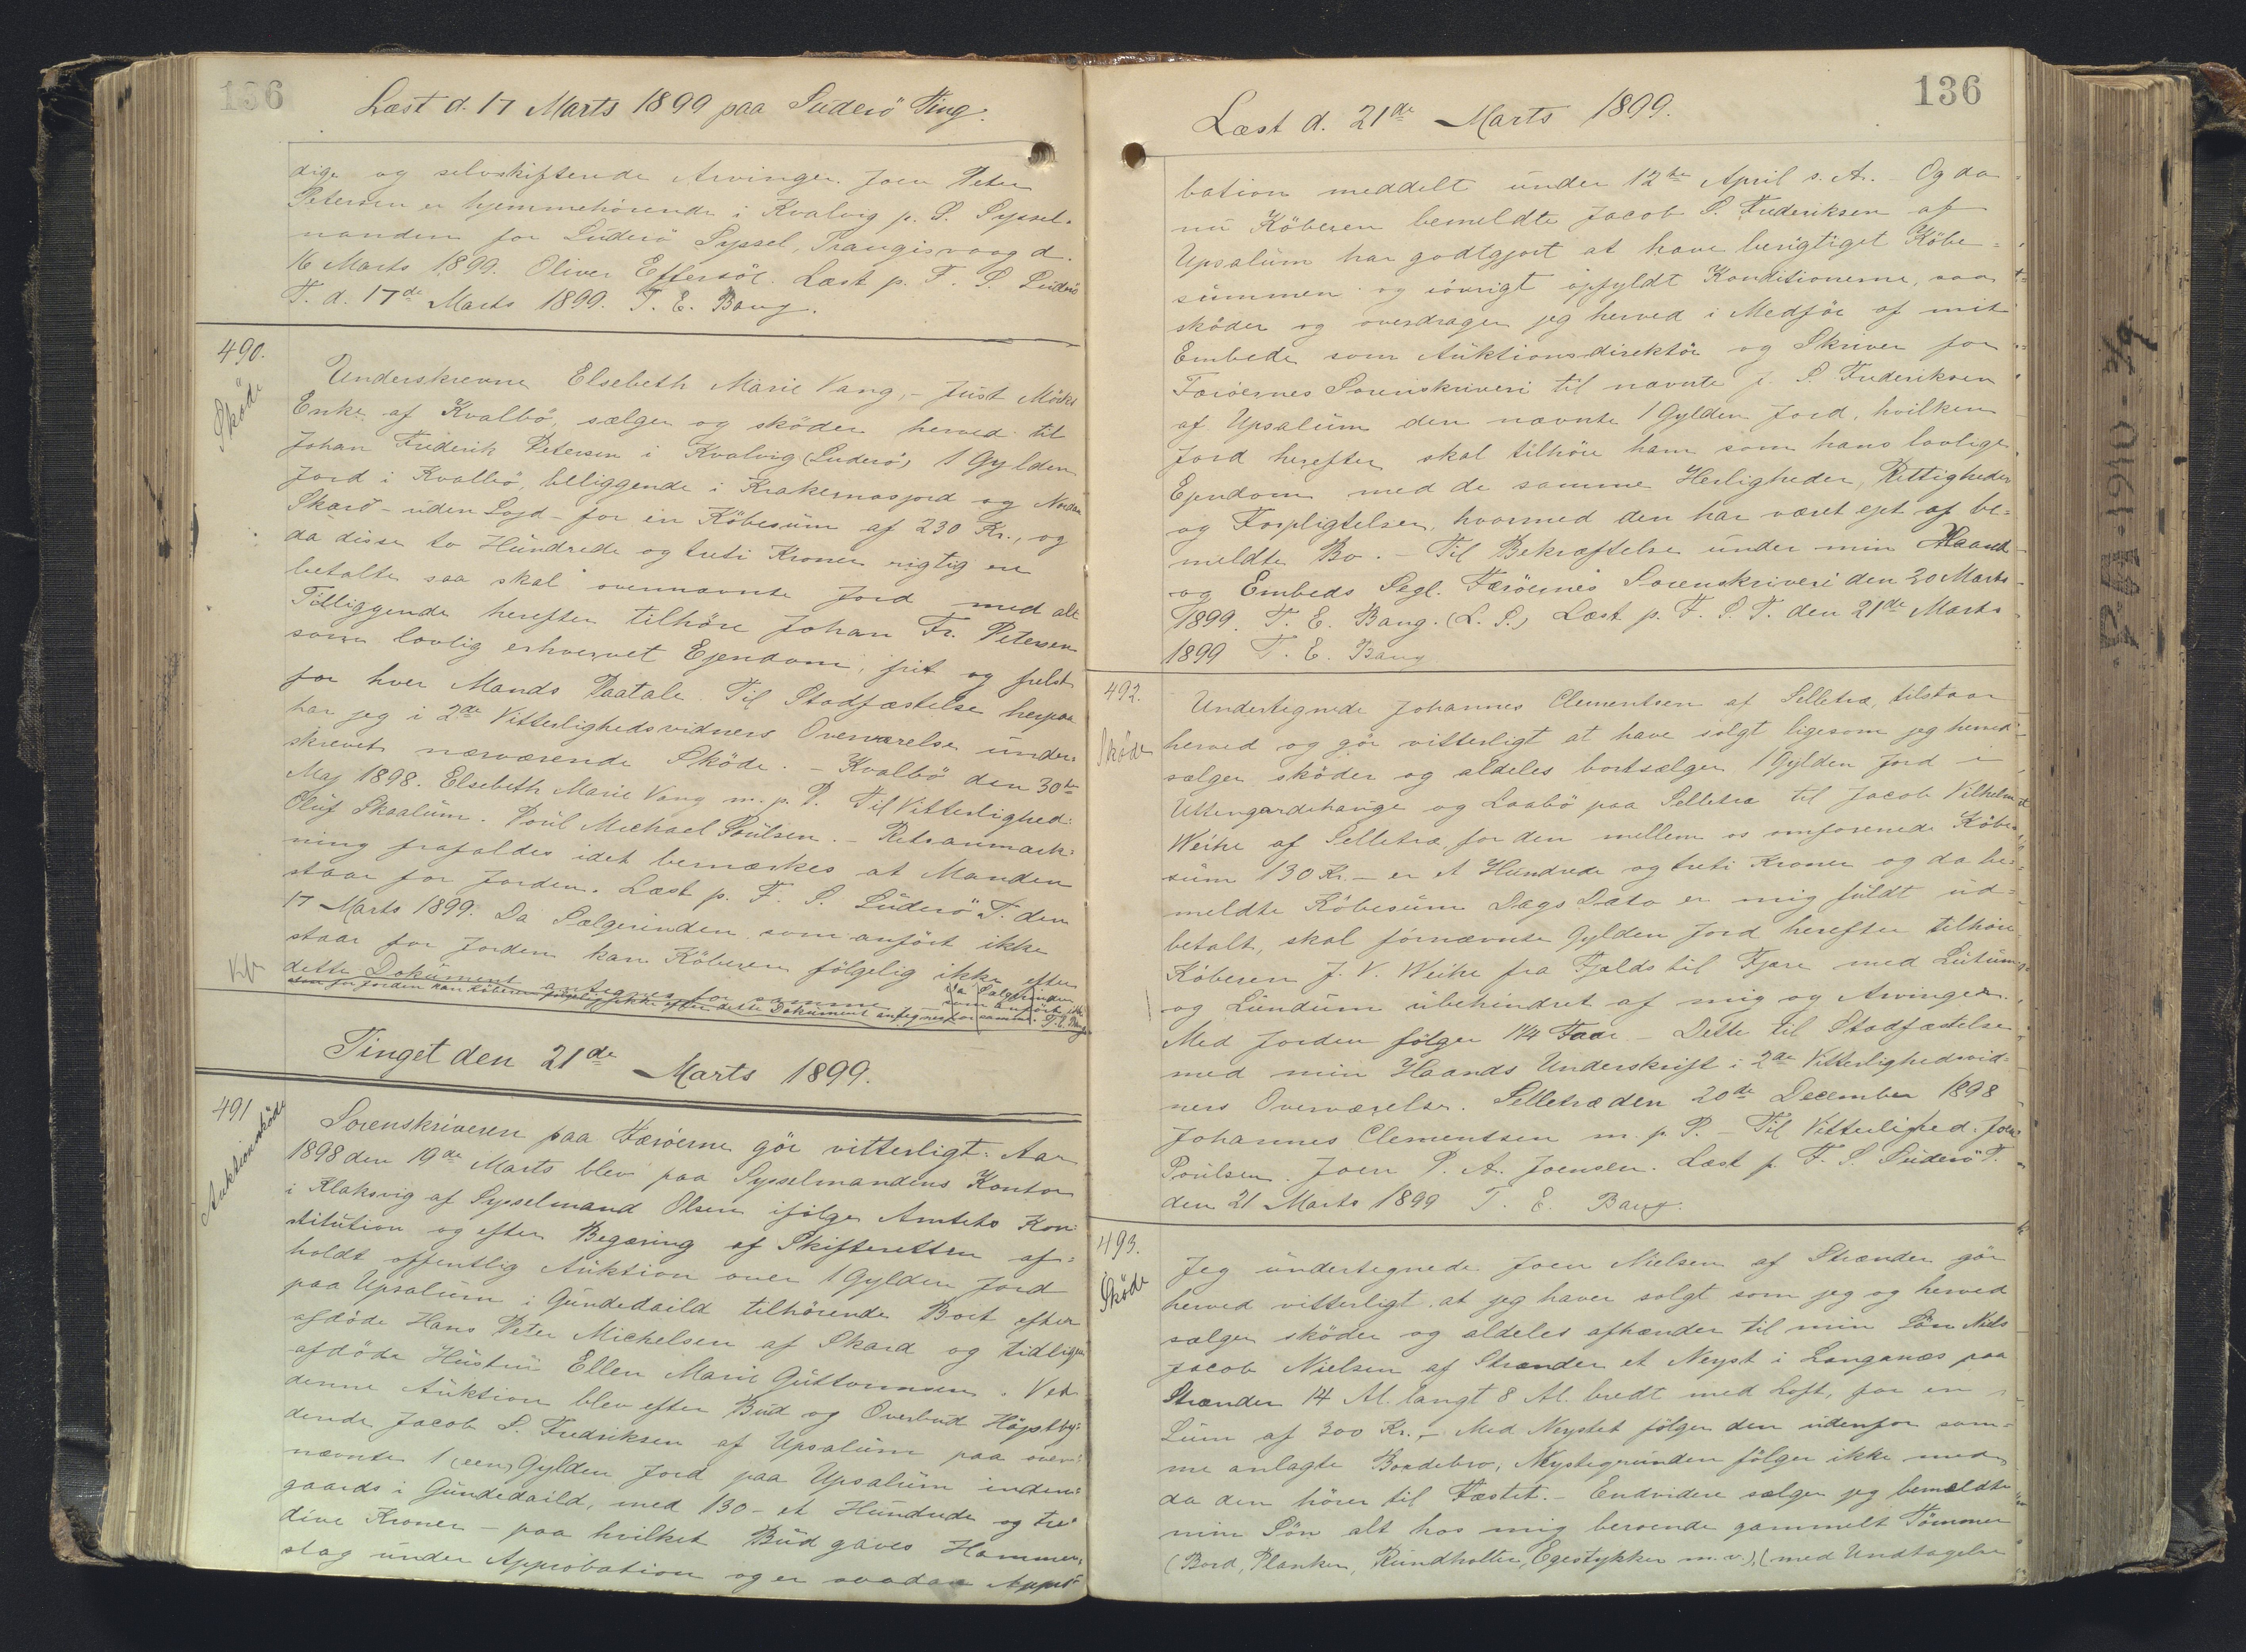 136
Læst d. 17 Marts 1899 paa Suderö Ting.
dige og selvskiftende Arvinger. Joen Peter
Petersen er hjemmehörende i Kvalvig p. S. Syssel-
manden for Suderö Syssel, Trangisvaag d.
16 Marts 1899. Oliver Effersöe. Læst p. F. S. Suderö
T. d. 17de Marts 1899. T. E. Bang.
490.
Sköde
Underskrevne Elsebeth Marie Vang, - Just Mörks
Enke af Kvalbö, sælger og sköder herved til
Johan Frederik Petersen i Kvalvig (Suderö) 1 Gylden
Jord i Kvalbö, beliggende i Krakernasjord og Norden
Skarö - uden Lojd - for en Köbesum af 230 Kr., og
da disse to Hundrede og treti Kroner rigtig ere
betalte saa skal ovennævnte Jord med alt
Tilliggende herefter tilhöre Johan Fr. Petersen
som lovlig erhvervet Ejendom, frit og frelst
for hver Mands Paatale. Til Stadfæstelse herpaa
har jeg i 2de Vitterlighedsvidners Overværelse under-
skrevet nærværende Sköde. - Kvalbö den 30te
Maj 1898. Elsebeth Marie Vang m. p. P. Til Vitterlighed:
Oluf Skaalum. Poul Michael Poulsen. - Retsanmærk-
ning frafaldes idet bemærkes at Manden
staar for Jorden. Læst p. F. S. Suderö T. den
17 Marts 1899. Da Sælgerinden som anfört ikke
staar for Jorden kan Köberen fölgelig ikke efter
dette Dokument antegnes for samme
Da Sælgerinden som anfört ikke
staar for Jorden kan Köberen fölgelig ikke efter dette Dokument antegnes for samme. T. E. Bang
Tinget den 21de Marts 1899.
491
Auktionssköde
Sorenskriveren paa Færöerne gör vitterligt: Aar
1898 den 19de Marts blev paa Sysselmandens Kontor
i Klaksvig af Sysselmand Olsen ifölge Amtets Kon-
stitution og efter Begæring af Skifteretten af-
holdt offentlig Auktion over 1 Gylden Jord
paa Upsalum i Gundedaild tilhörende Boet efter
afdöde Hans Peter Michelsen af Skard og tidligere
afdöde Hustru Ellen Marie Guttormsen. Ved
denne Auktion blev efter Bud og Overbud Höjstby-
dende Jacob S. Fredriksen af Upsalum paa oven-
nævnte 1 (een) Gylden Jord paa Upsalum inden-
gaards i Gundedaild, med 130 - et Hundrede og tre-
dive Kroner - paa hvilket Bud gaves Hammer-
slag under Approbation og er saadan Appro-
136
Læst d. 21de Marts 1899.
bation meddelt under 12te April s. A. - Og da
nu Köberen bemeldte Jacob S. Frederiksen af
Upsalum har godtgjort at have berigtiget Köbe-
summen og iövrigt opfyldt Konditionerne, saa
sköder og overdrager jeg herved i Medför af mit
Embede som Auktionsdirektör og Skriver for
Færöernes Sorenskriveri til nævnte J. S. Frederiksen
af Upsalum den nævnte 1 Gylden Jord, hvilken
Jord herefter skal tilhöre ham som hans lovlige
Ejendom med de samme Herligheder, Rettigheder
og Forpligtelser, hvormed den har været ejet af be-
meldte Bo. - Til Bekræftelse under min Haand
og Embeds Segl. Færöernes Sorenskriveri den 20 Marts
1899. T. E. Bang. (L. S.) Læst p. F. S. T. den 21de Marts
1899 T. E. Bang
492.
Sköde
Undertegnede Johannes Clementsen af Selletræ, tilstaar
herved og gör vitterligt at have solgt ligesom jeg herved
sælger sköder og aldeles bortsælger 1 Gylden Jord i
Uttengardehauge og Laabö paa Selletræ til Jacob Vilhelm
Weihe af Selletræ for den mellem os omforenede Köbe-
sum 130 Kr. - er et Hundrede og treti Kroner og da be-
meldte Köbesum Dags Dato er mig fuldt ud-
betalt, skal förnævnte Gylden Jord herefter tilhöre
Köberen J. V. Weihe fra Fjelds til Fjære med Lutum
og Lundum ubehindret af mig og Arvinger.
Med Jorden fölger 1 1/4 Faar - Dette til Stadfæstelse
med min Haands Underskrift i 2de Vitterlighedsvid-
ners Overværelse. Selletræ den 20de December 1898
Johannes Clementsen m. p. P. - Til Vitterlighed: Joen
Poulsen. Joen P. A. Joensen. Læst p. F. S. Suderö T.
den 21 Marts 1899 T. E. Bang.
493.
Sköde
Jeg undertegnede Joen Nielsen af Strænder gör
herved vitterligt, at jeg haver solgt som jeg og herved
sælger sköder og aldeles afhænder til min Sön Niels
Jacob Nielsen af Strænder et Neyst i Langanæs paa
Strænder 14 Al. langt 8 Al. bredt med Loft, for en
Sum af 300 Kr., - Med Neystet fölger den udenfor sam-
me anlagte Baadebro, Neystegrunden fölger ikke med
da den hörer til Fæstet. - Endvidere sælger jeg bemeldte
min Sön alt hos mig beroende gammelt Tömmer
(Bord, Planker, Rundholter, Egestykker m. v.), (med Undtagelse